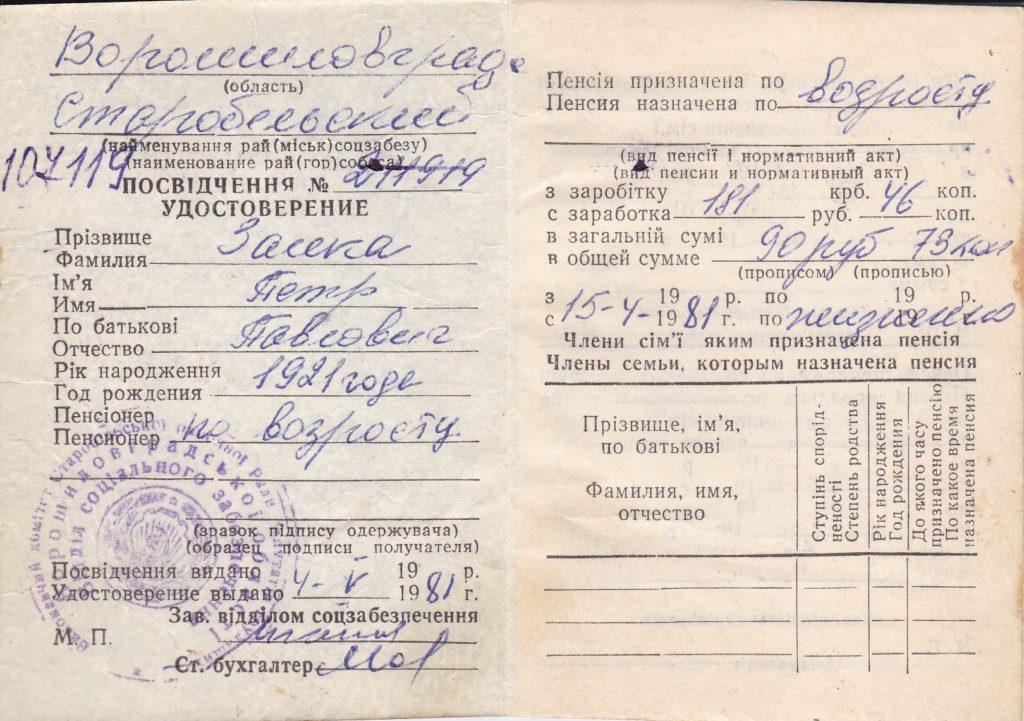 Ворошиловград
(область)
Старобельский
(найменування рай(міськ)соцзабезу)
(наименование рай(гор)собеса)
107119
ПОСВІДЧЕННЯ №
УДОСТОВЕРЕНИЕ
Прізвище
Фамилия Замка
Ім'я
Имя Петр
По батькові
Отчество Павлович
Рік народження
Год рождения 1921 годе
Пенсіонер
Пенсионер по возросту
(зразок підпису одержувача)
(образец подписи получателя)
Посвідчення видано 19 р.
Удостоверение выдано 4-V 1981 г.
Зав. відділом соцзабезпечення
М. П.
Ст. бухгалтер
Пенсія призначена по
Пенсия назначена по возросту
(вид пенсії і нормативний акт)
(вид пенсии и нормативный акт)
з заробітку крб. коп.
с заработка 181 руб. 46 коп.
в загальній сумі
в общей сумме 90 руб 73 коп
(прописом) (прописью)
з 19 р. по 19 р.
с 15-4-1981 г. по 19 пожизненно
Члени сім'ї яким призначена пенсія
Члены семьи, которым назначена пенсия
Прізвище, ім'я,
по батькові
Фамилия, имя,
отчество
Ступінь спорід-
неності
Степень родства
Рік народження
Год рождения
До якого часу
призначено пенсію
По какое время
назначена пенсия